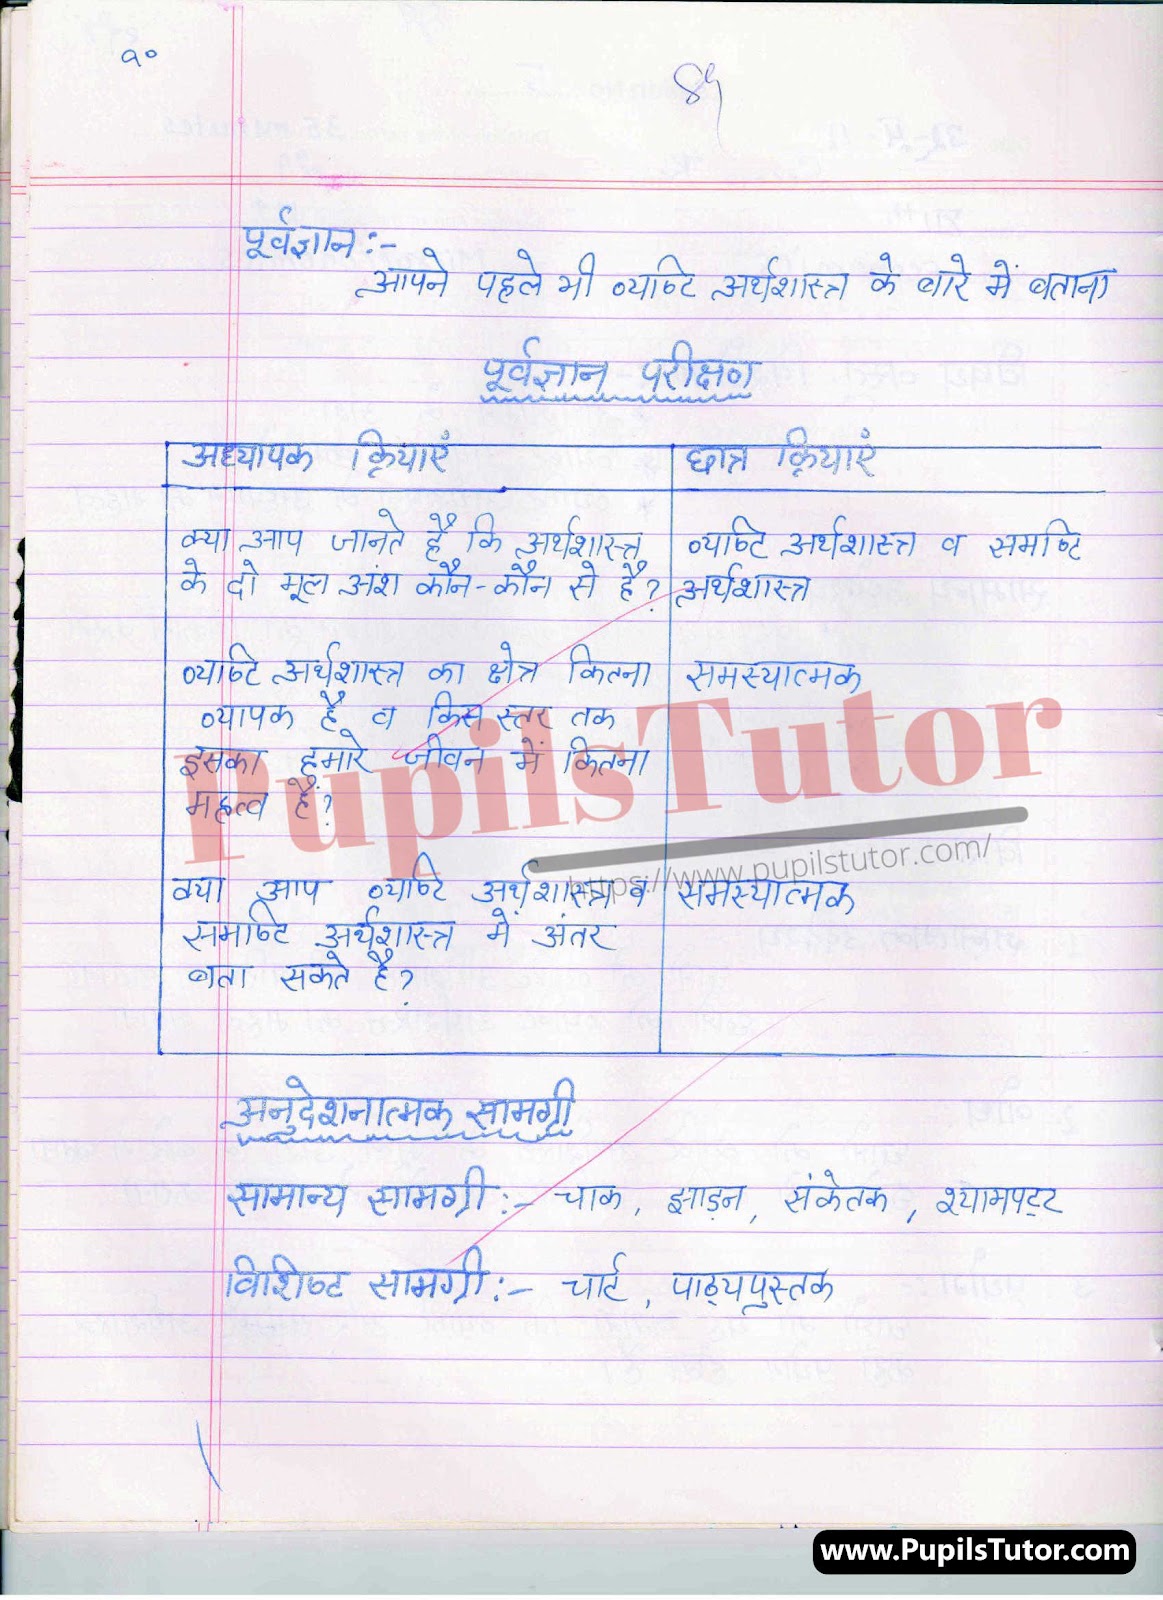 पूर्वज्ञान :-
आपने पहले भी व्यष्टि अर्थशास्त्र के बारे में बताना
पूर्वज्ञान परीक्षण
अध्यापक क्रियाएं
छात्र क्रियाएं
क्या आप जानते है कि अर्थशास्त्र
के दो मूल अंश कौन-कौन से है?
व्यष्टि अर्थशास्त्र व समष्टि
अर्थशास्त्र
व्यष्टि अर्थशास्त्र का क्षेत्र कितना
व्यापक है व किस स्तर तक
इसका हमारे जीवन में कितना
महत्व है?
समस्यात्मक
PupilsTutor
https://www.pupilstutor.com/
क्या आप व्यष्टि अर्थशास्त्र व
समष्टि अर्थशास्त्र में अंतर
बता सकते है?
समस्यात्मक
अनुदेशनात्मक सामग्री
सामान्य सामग्री :- चाक, झाड़न, संकेतक, श्यामपट्ट
विशिष्ट सामग्री :- चार्ट, पाठ्यपुस्तक
www.PupilsTutor.com